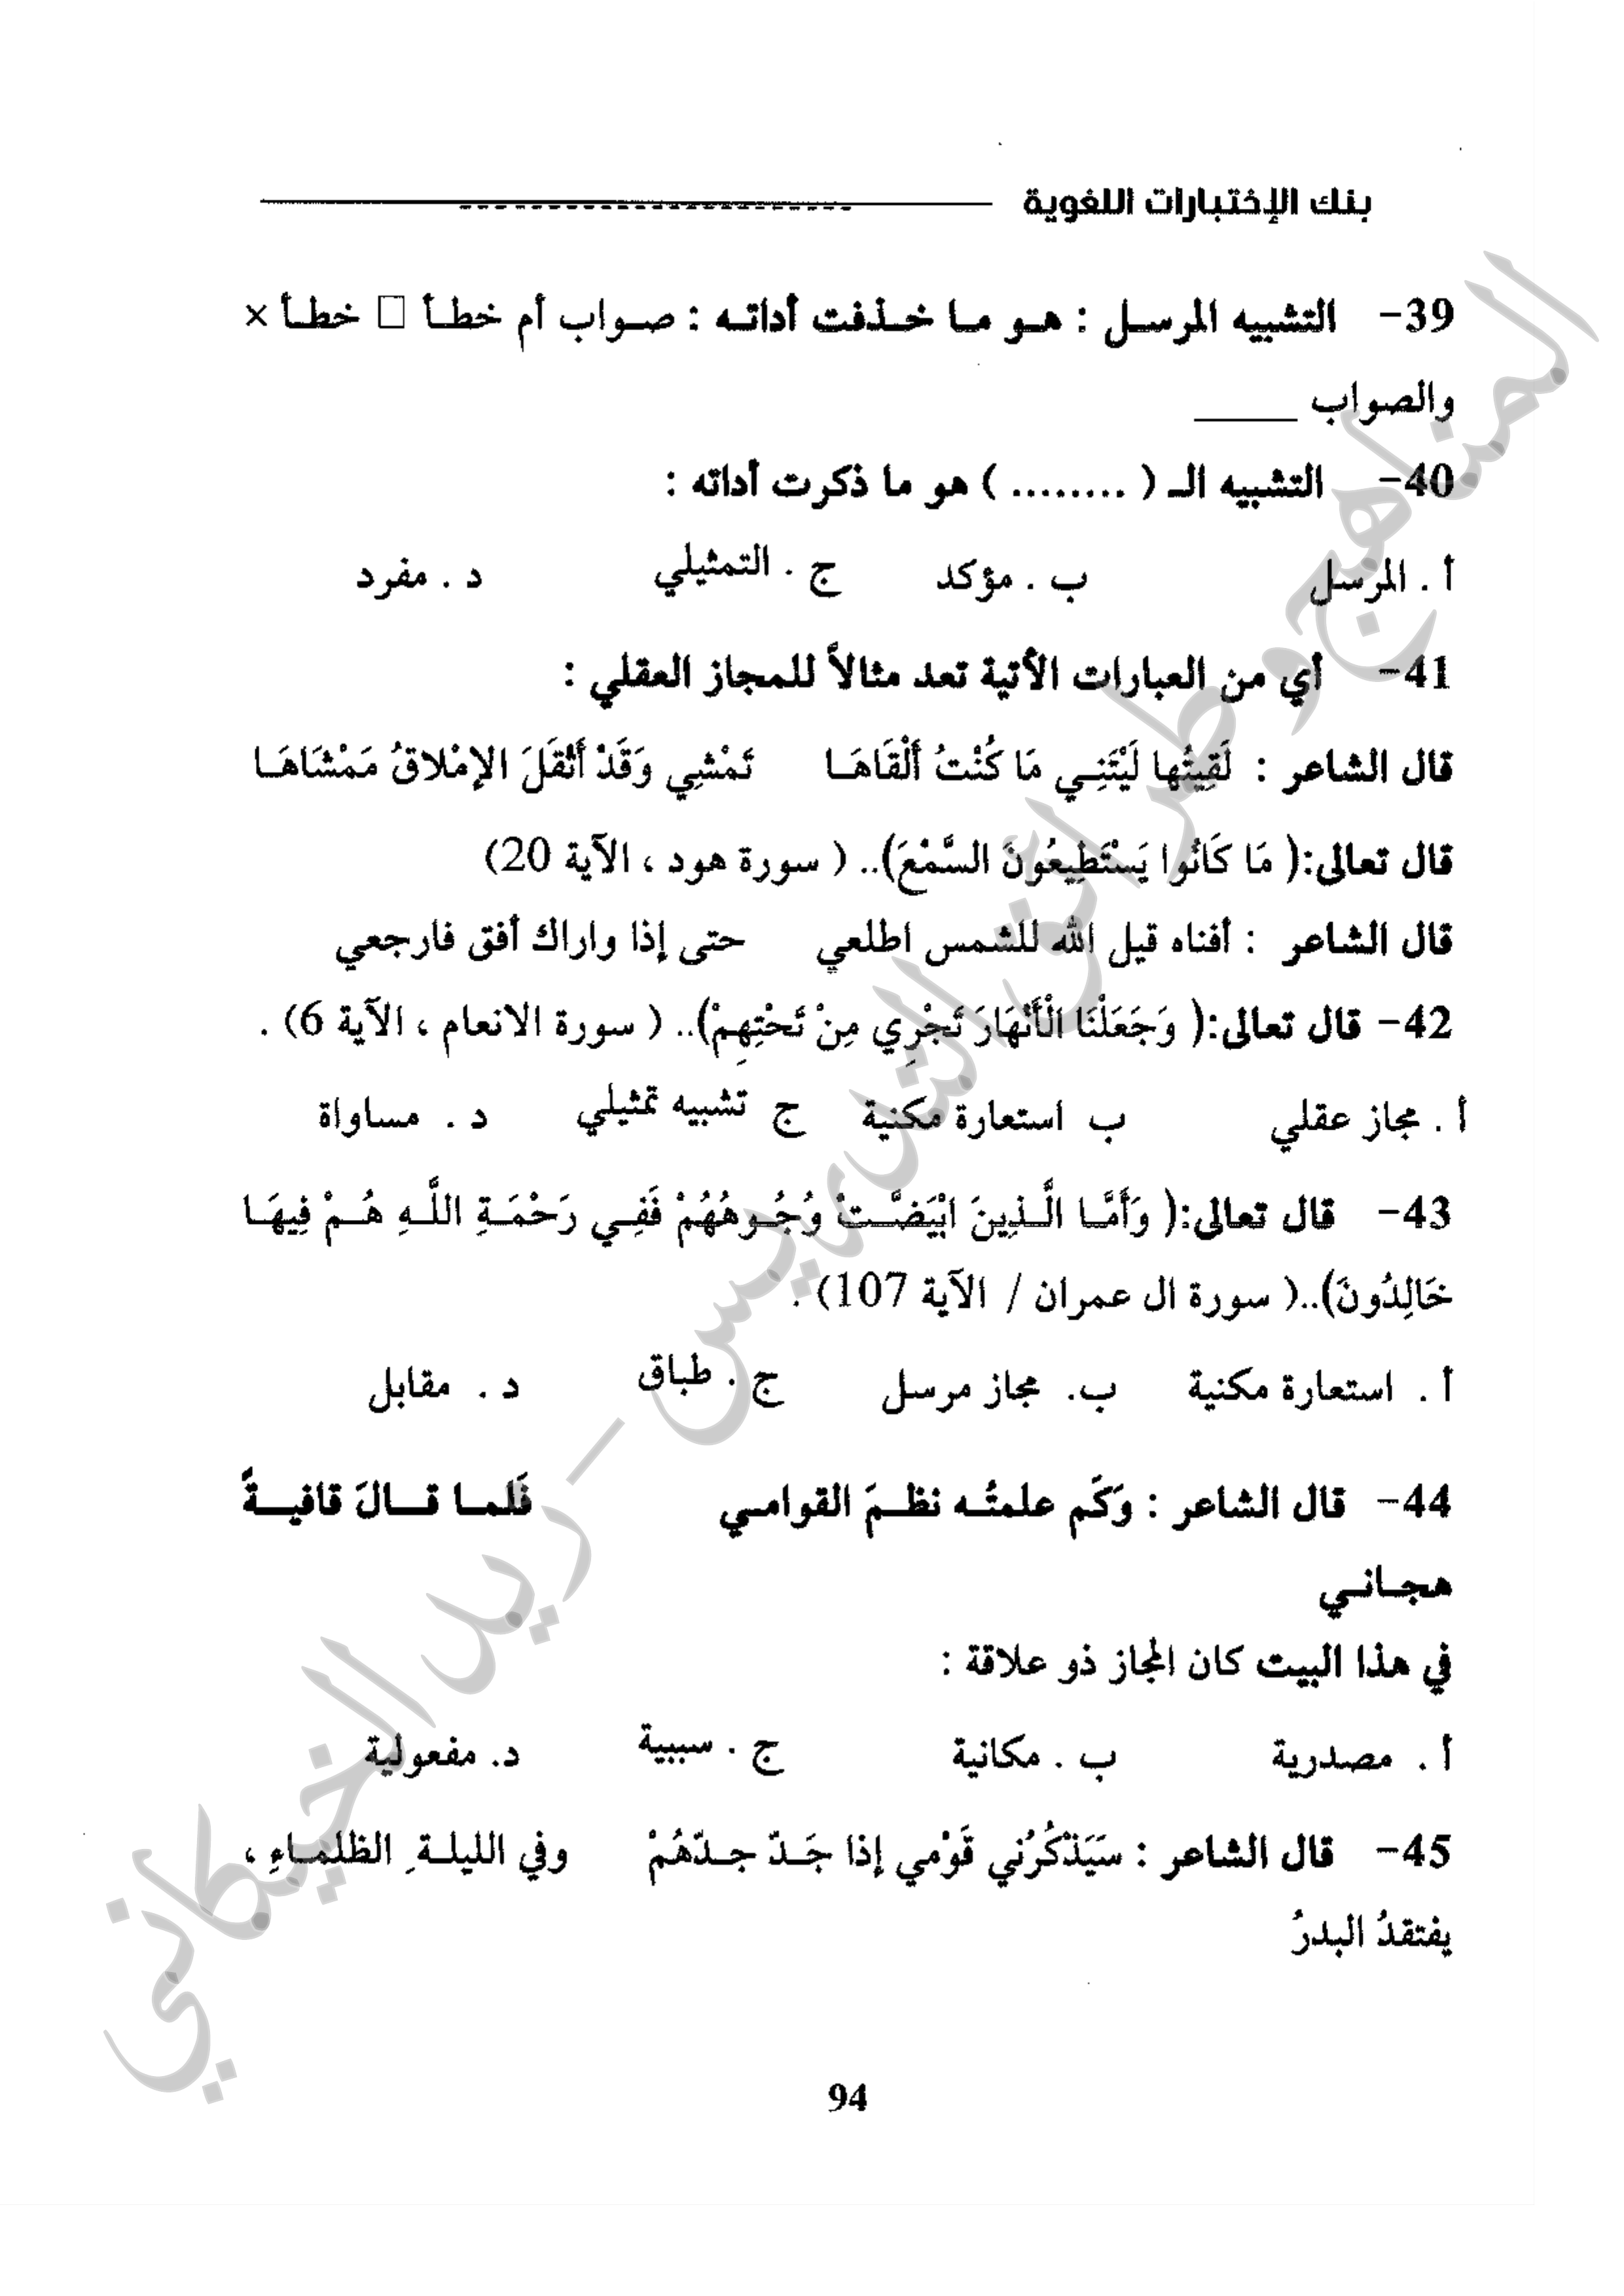 بنك الإختبارات اللغوية
39- التشبيه المرسل : هو ما خذفت أداته : صواب أم خطأ □ خطأ ×
والصواب _____
40- التشبيه الـ ( ........ ) هو ما ذكرت أداته :
أ . المرسل ب . مؤكد ج . التمثيلي د . مفرد
41- أي من العبارات الأتية تعد مثالاً للمجاز العقلي :
قال الشاعر : لَقِيتُها لَيْتَنِي مَا كُنْتُ أَلْقَاهَا تَمْشِي وَقَدْ أَثْقَلَ الإمْلاقُ مَمْشَاهَا
قال تعالى:( مَا كَانُوا يَسْتَطِيعُونَ السَّمْعَ).. ( سورة هود ، الآية 20)
قال الشاعر : أفناه قيل الله للشمس اطلعي حتى إذا واراك أفق فارجعي
42- قال تعالى:( وَجَعَلْنَا الْأَنْهَارَ تَجْرِي مِنْ تَحْتِهِمْ).. ( سورة الانعام ، الآية 6) .
أ . مجاز عقلي ب استعارة مكنية ج تشبيه تمثيلي د . مساواة
43- قال تعالى:( وَأَمَّا الَّذِينَ ابْيَضَّتْ وُجُوهُهُمْ فَفِي رَحْمَةِ اللَّهِ هُمْ فِيهَا
خَالِدُونَ)..( سورة ال عمران / الآية 107) .
أ . استعارة مكنية ب. مجاز مرسل ج . طباق د . مقابل
44- قال الشاعر : وَكَم علمتُه نظمَ القوامي فَلما قالَ قافيةً
هجاني
في هذا البيت كان المجاز ذو علاقة :
أ . مصدرية ب . مكانية ج . سببية د. مفعولية
45- قال الشاعر : سَيَذْكُرُني قَوْمي إذا جَدّ جدّهُمْ وفي الليلةِ الظلماءِ ،
يفتقدُ البدرُ
94
المناهج وطرائق التدريس - ريد الخيكاني